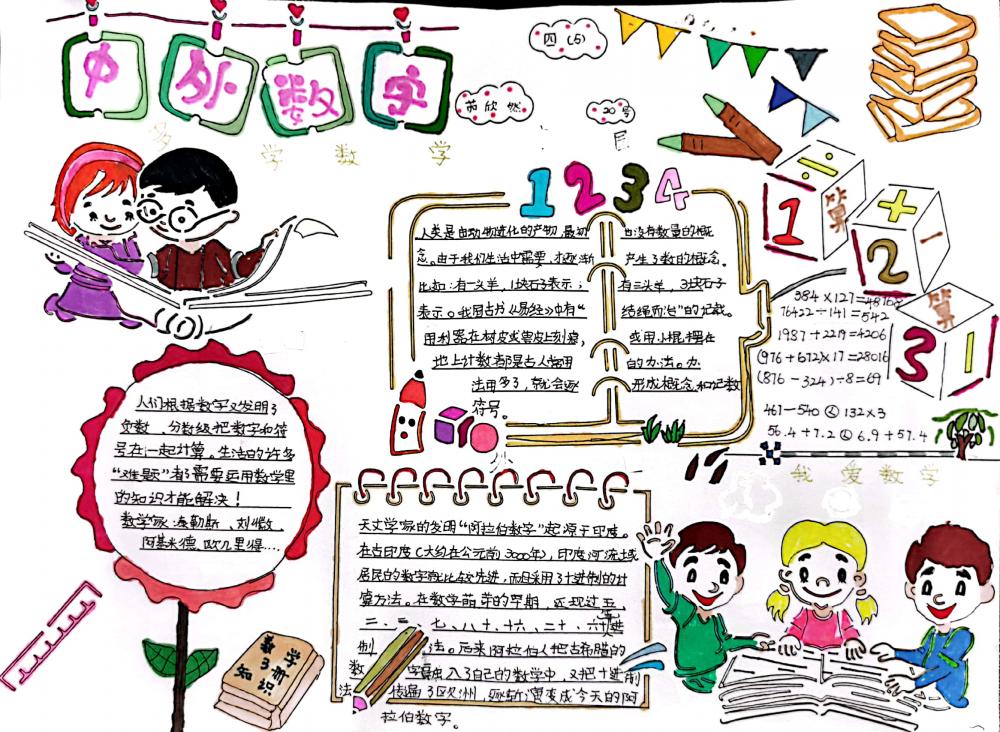 中外数字
四(5)
芮欣然
20号
多学数学
1 2 3 4
人类是由动物进化的产物,最初也没有数量的概
念。由于我们生活中需要,才逐渐产生了数的概念。
比如:有一头羊,1块石子表示;有三头羊,3块石子
表示。我国古书《易经》中有“结绳而治”的记载。
用利器在树皮或兽皮上刻痕,或用小棍摆在
地上计数都是古人常用的办法。办
法用多了,就会逐形成概念和记数
符号。
÷
1
算
+
2
一
算
3
1
384×127=48768
76422÷141=542
1987+2219=4206
(976+672)×17=28016
(876-324)÷8=69
461-540 < 132×3
56.4+7.2 < 6.9+57.4
我爱数学
人们根据数字又发明了
负数、分数级把数字和符
号在一起计算。生活的许多
“难题”都需要运用数学里
的知识才能解决!
数学家:泰勒斯、刘徽、
阿基米德、欧几里得....
天文学家的发明“阿拉伯数字”起源于印度。
在古印度(大约在公元前3000年),印度河流域
居民的数字就比较先进,而且采用了十进制的计
算方法。在数学萌芽的早期,还现过五、
二、三、七、八十、十六、二十、六十等进
制法。后来阿拉伯人把古希腊的
数字融入了自己的数学中,又把十进制
法传遍了欧洲,逐渐演变成今天的阿
拉伯数字。
数学
小知识